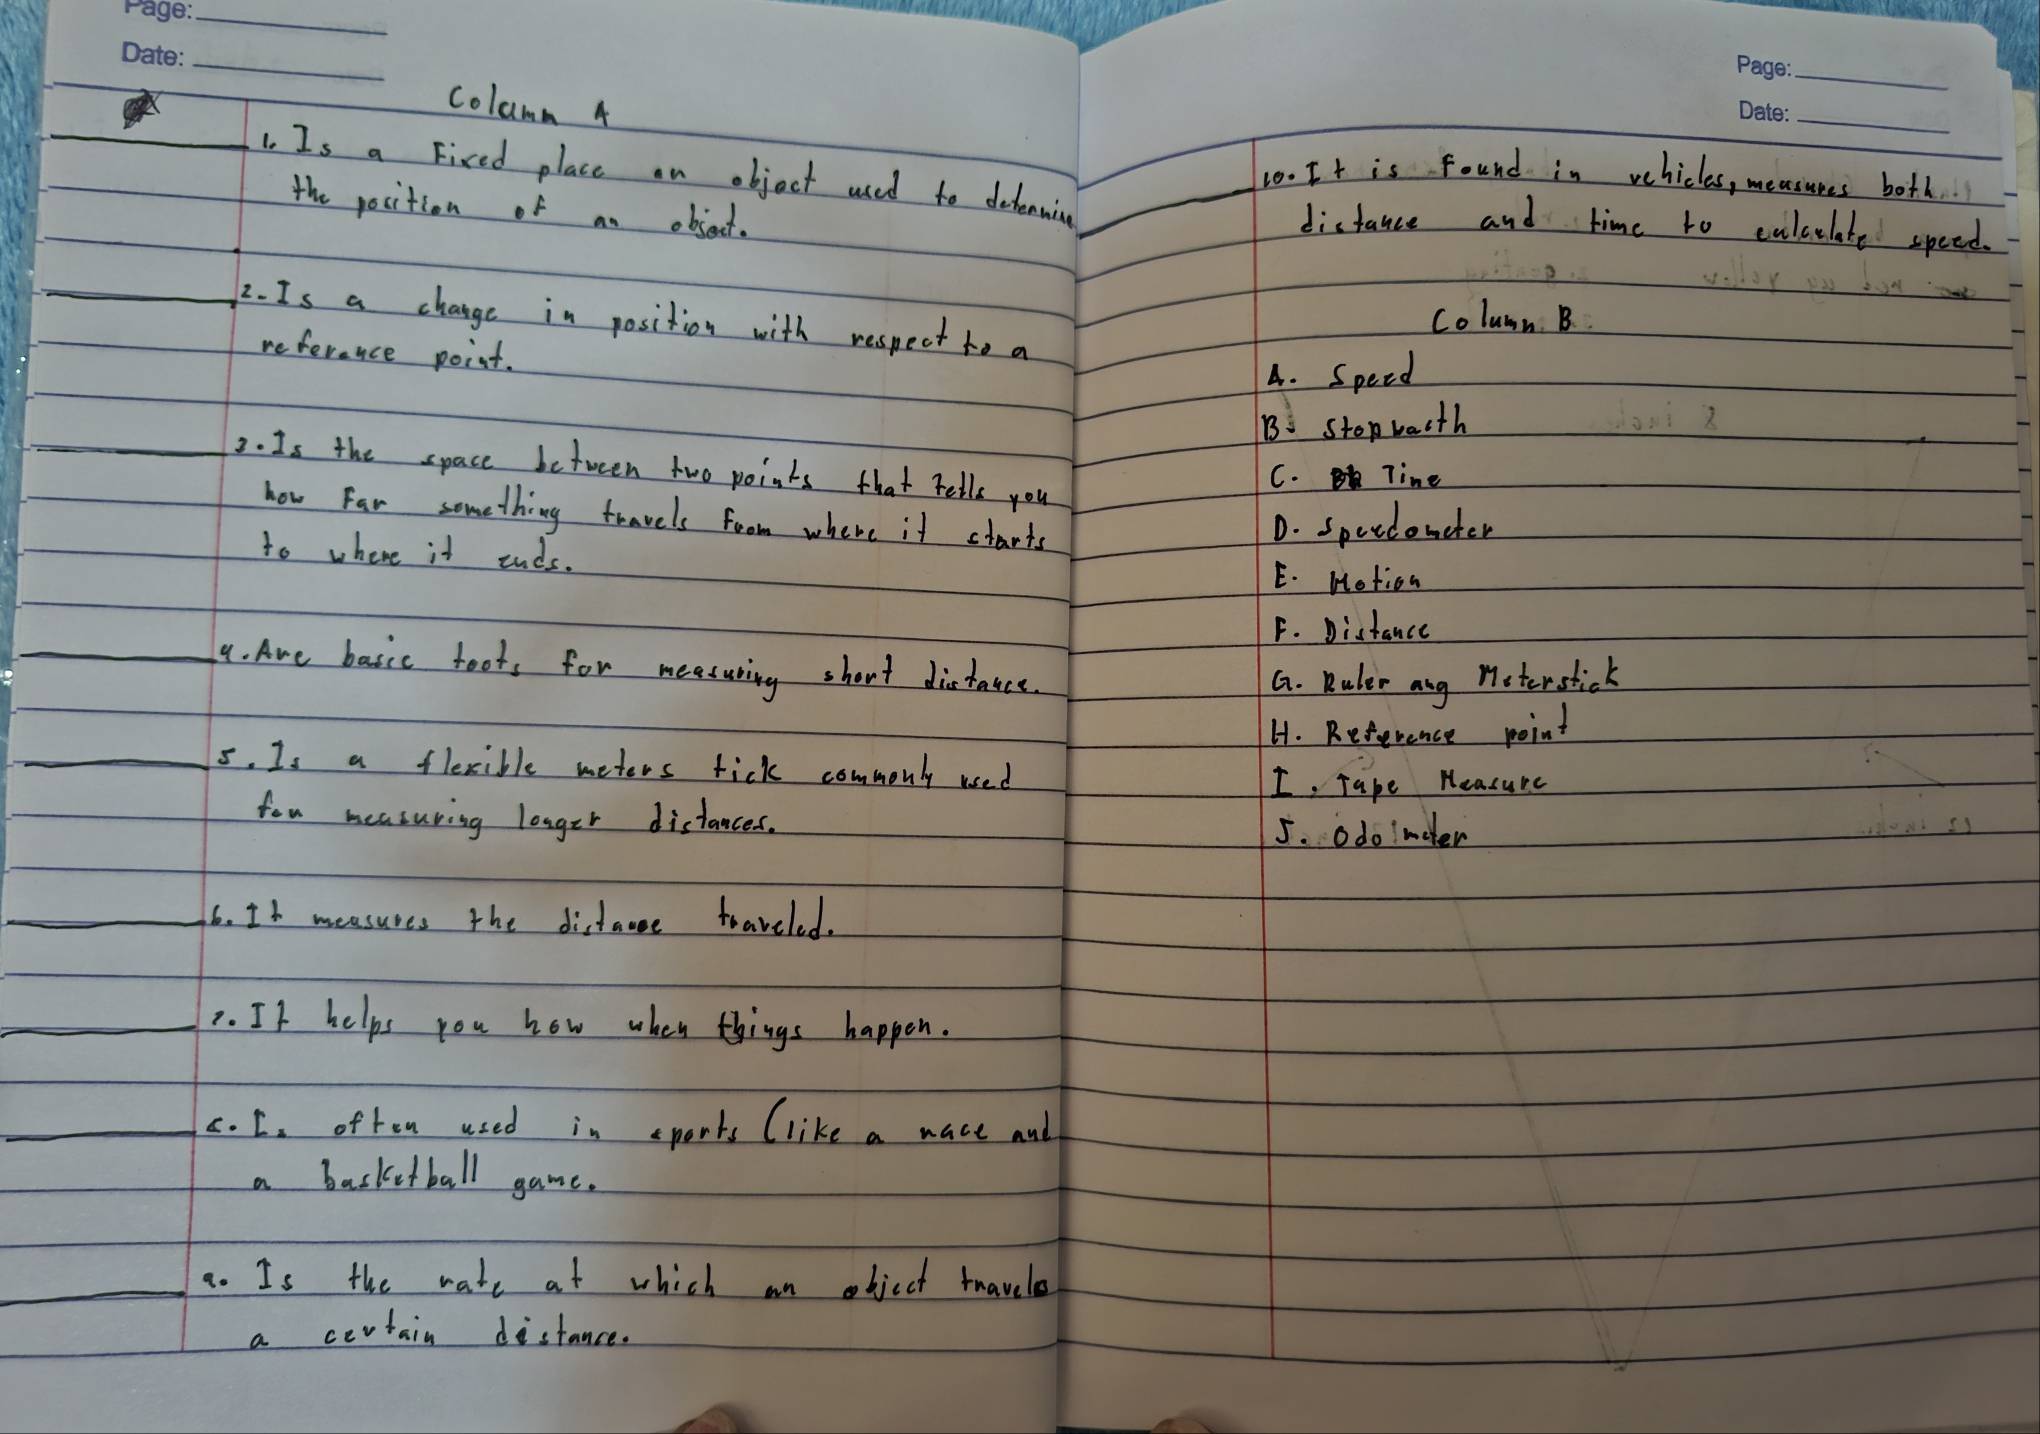 Page:
Date:
Column A
1. Is a Fixed place on object used to determine
the position of an object.
2. Is a change in position with respect to a
reference point.
3. Is the space between two points that tells you
how Far something travels From where it starts
to where it ends.
4. Are basic tools for measuring short distance.
5. Is a flexible meters tick commonly used
for measuring longer distances.
6. It measures the distance traveled.
7. It helps you how when things happen.
8. Is often used in sports (like a race and
a basketball game.
9. Is the rate at which an object travels
a certain distance.
Page:
Date:
10. It is Found in vehicles, measures both
distance and time to calculate speed.
Column B
A. Speed
B. Stopwacth
C. Time
D. Speedometer
E. Motion
F. Distance
G. Ruler ang Meterstick
H. Reference point
I. Tape Measure
J. Odoimeter